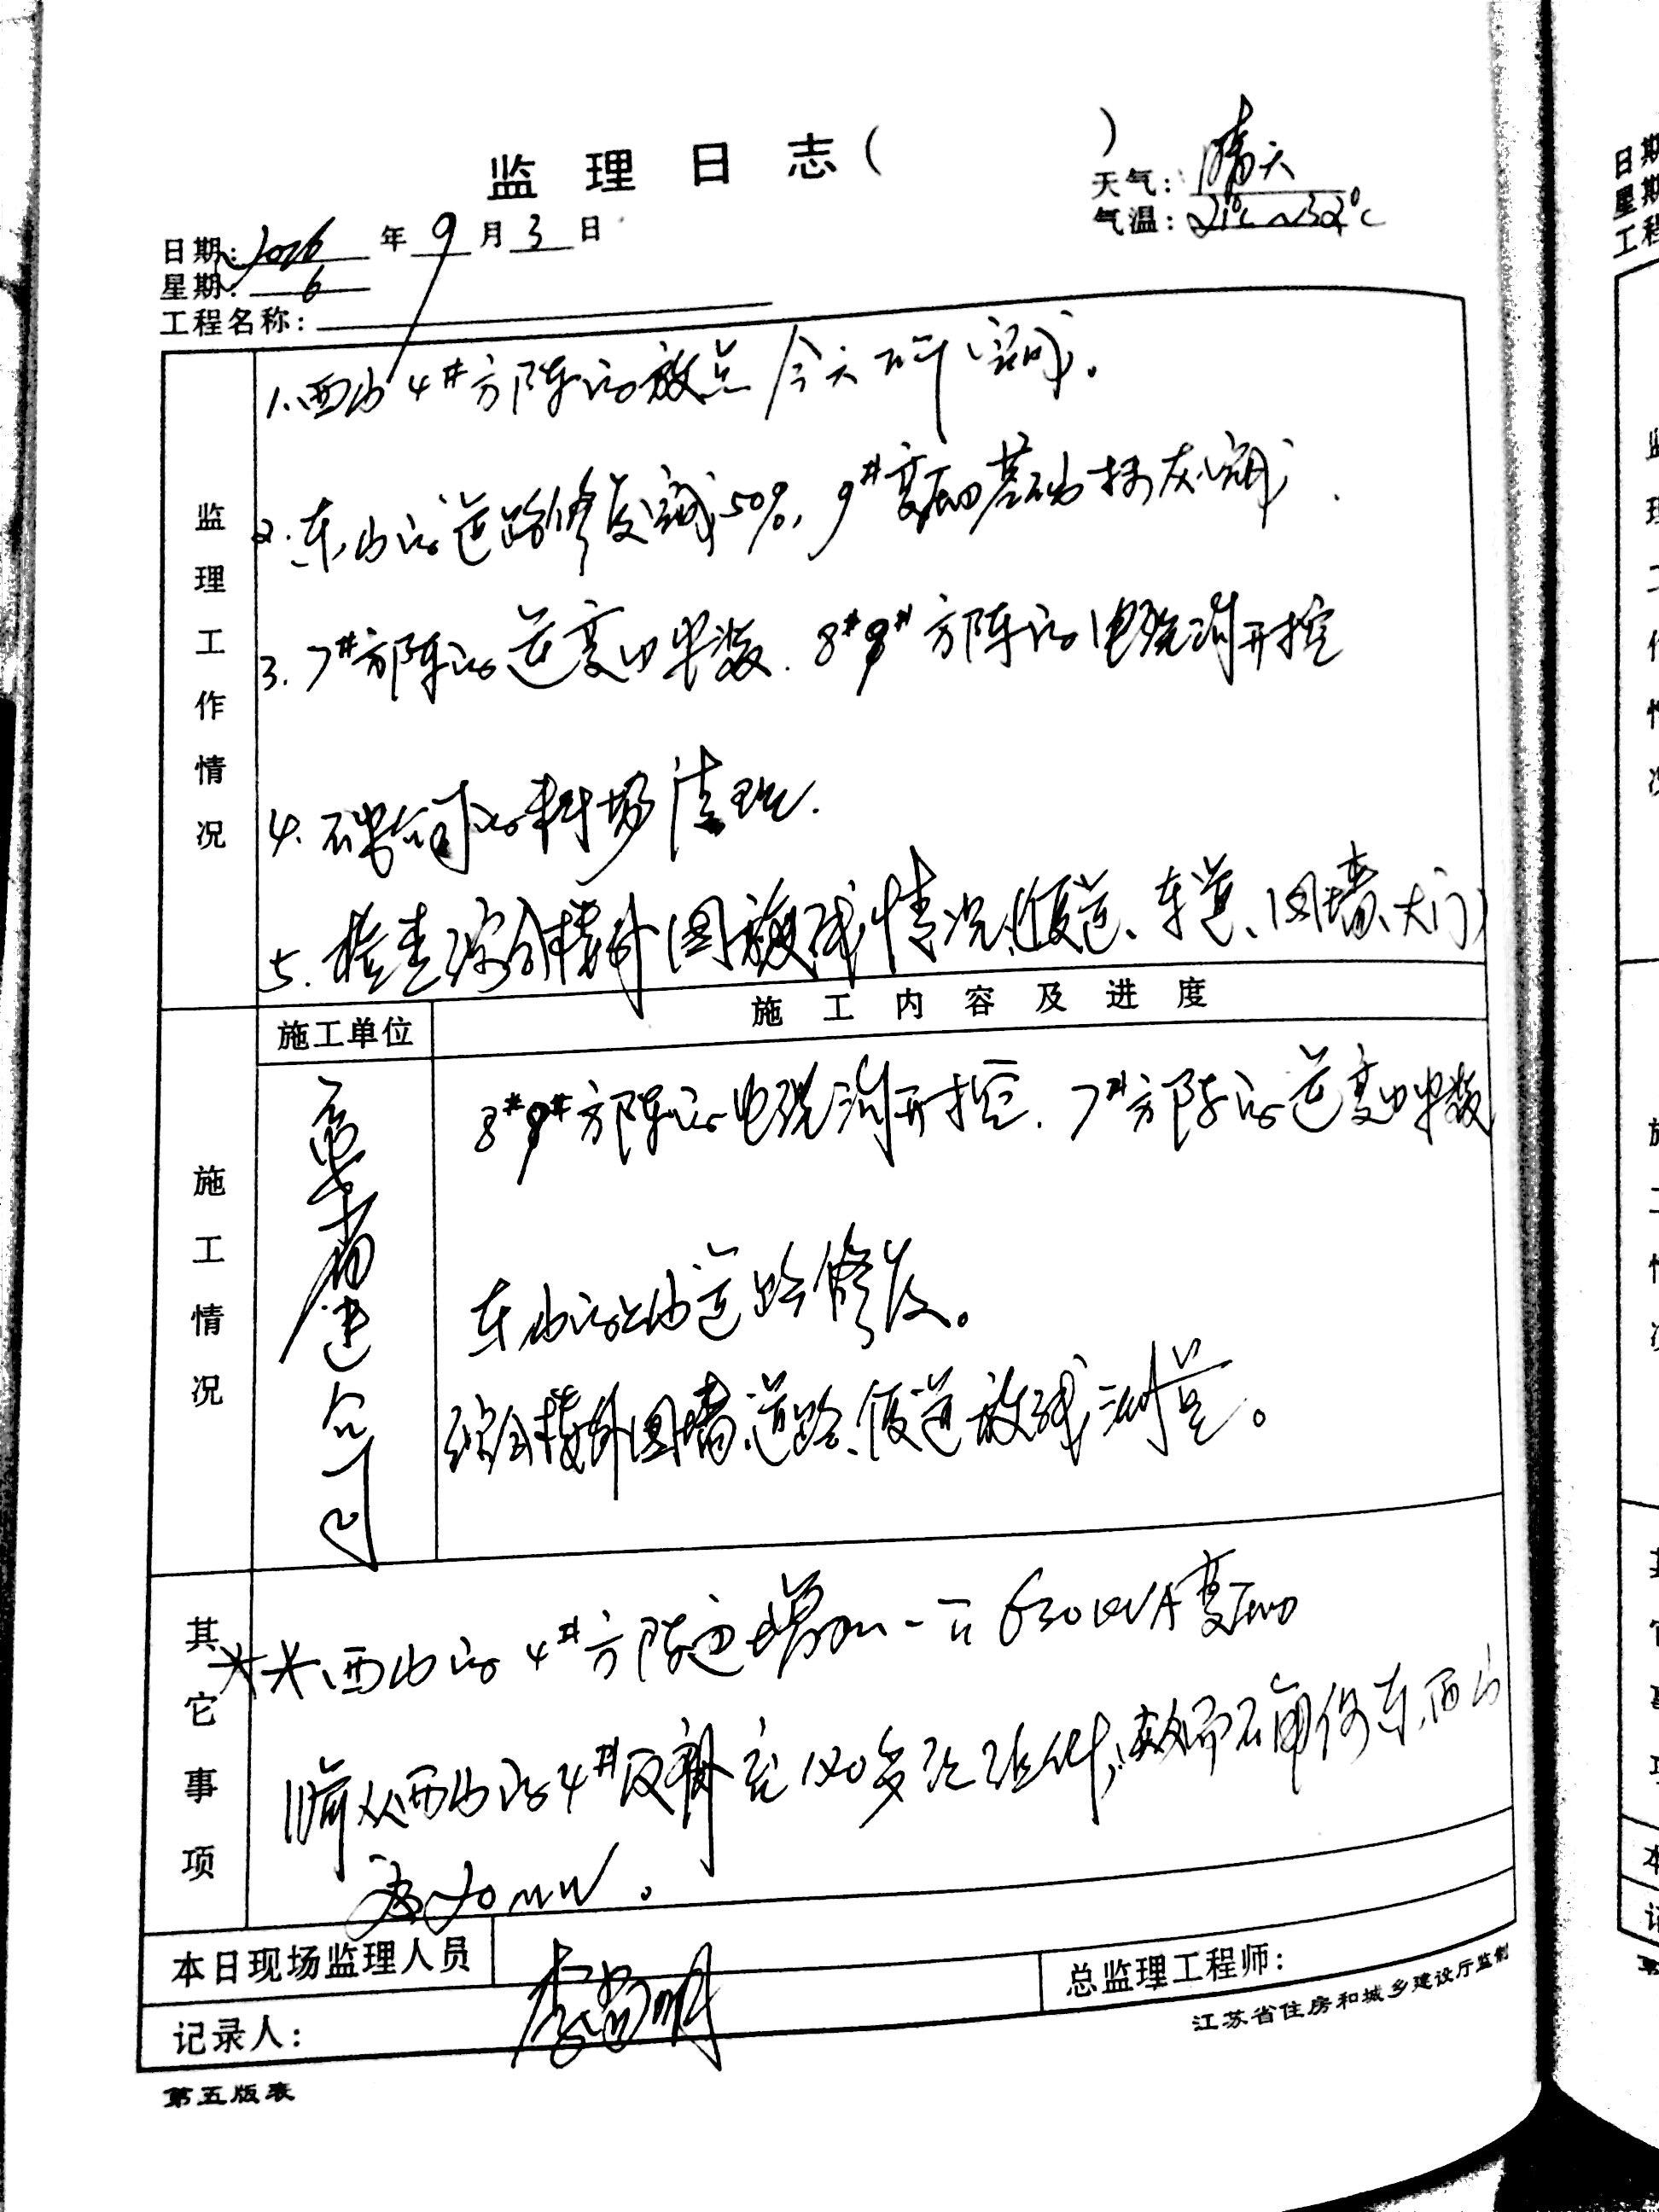 监理日志（ ）
天气：晴天
气温：21℃~32℃
日期：2016年9月3日
星期：6
工程名称：
监理工作情况
1、西山4#方阵的放点今天下午完成。
2.东山的道路修复完成50%，9#变压器基础抹灰完成.
3.7#方阵的逆变器安装.8#9#方阵的电缆沟开挖
4. 料场清理.
5.检查综合楼外围放线情况(便道、车道、围墙、大门)
施工情况
施工单位
施工内容及进度
建公司
8#9#方阵的电缆沟开挖.7#方阵的逆变器安装
东山的上山道路修复。
综合楼外围墙、道路、便道放线测量。
其它事项
西山的4#方阵边增加一台630KVA变压器
西山的4#补充120多 组件，东、西山
为20MW。
本日现场监理人员
总监理工程师：
记录人：
江苏省住房和城乡建设厅监制
第五版表